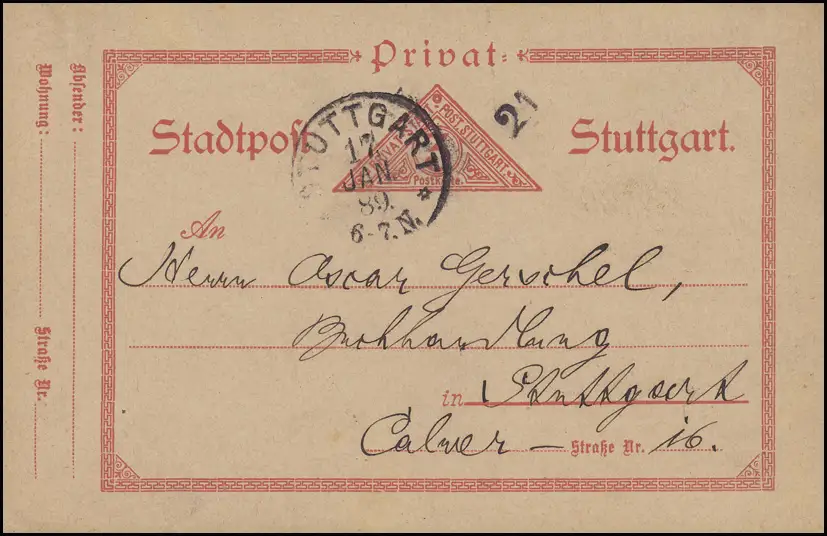 Privat-
Stadtpost Stuttgart.
POST. STUTTGART.
Postkarte.
STUTTGART
17
JAN.
89.
6-7.N.
21
An
Herrn Oscar Gerschel,
Buchhandlung
in Stuttgart
Calwer – Straße Nr. 16.
Absender:
Wohnung: Straße Nr.